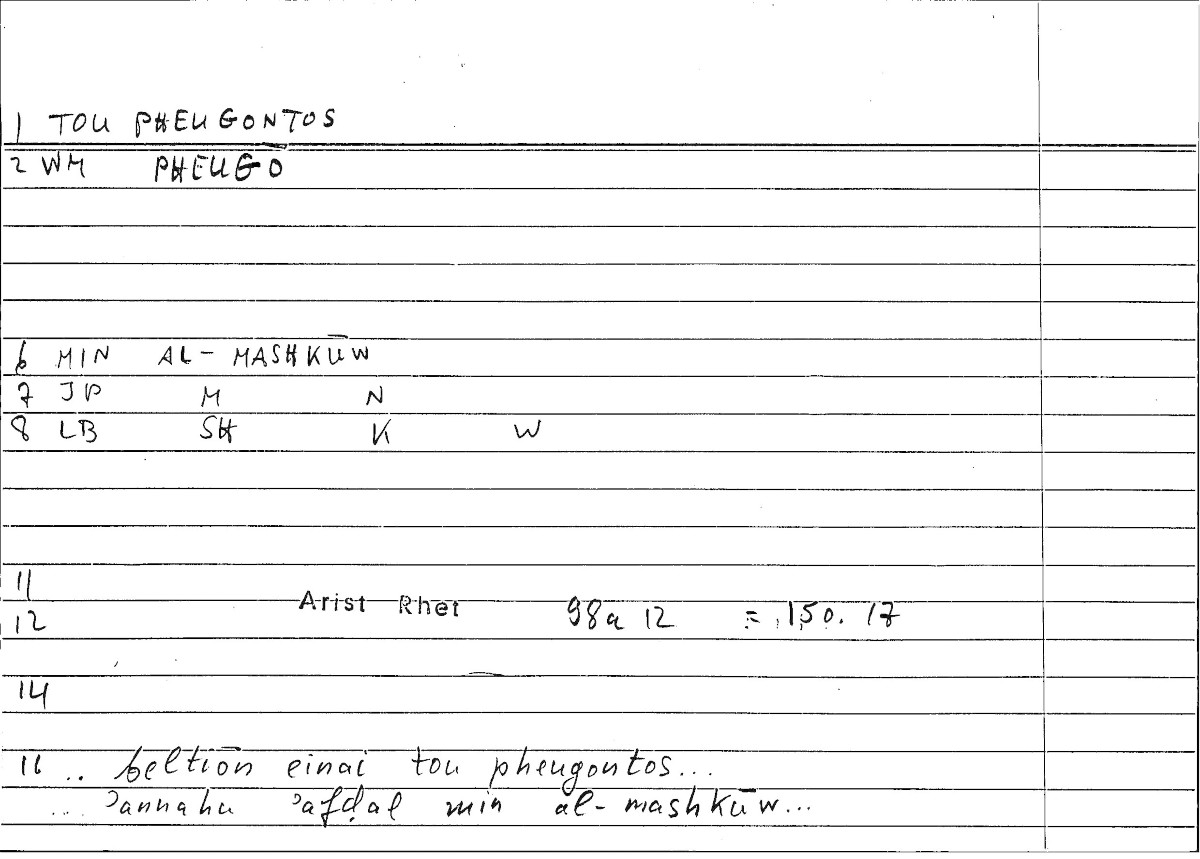 1 TOU PHEUGONTOS
2 WM PHEUGŌ
6 MIN AL- MASHKŪW
7 JP M N
8 LB SH K W
11
Arist Rhet 98a 12 = 150. 17
12
14
16 .. beltiōn einai tou pheugontos...
... ʾannahu ʾafḍal min al-mashkūw...